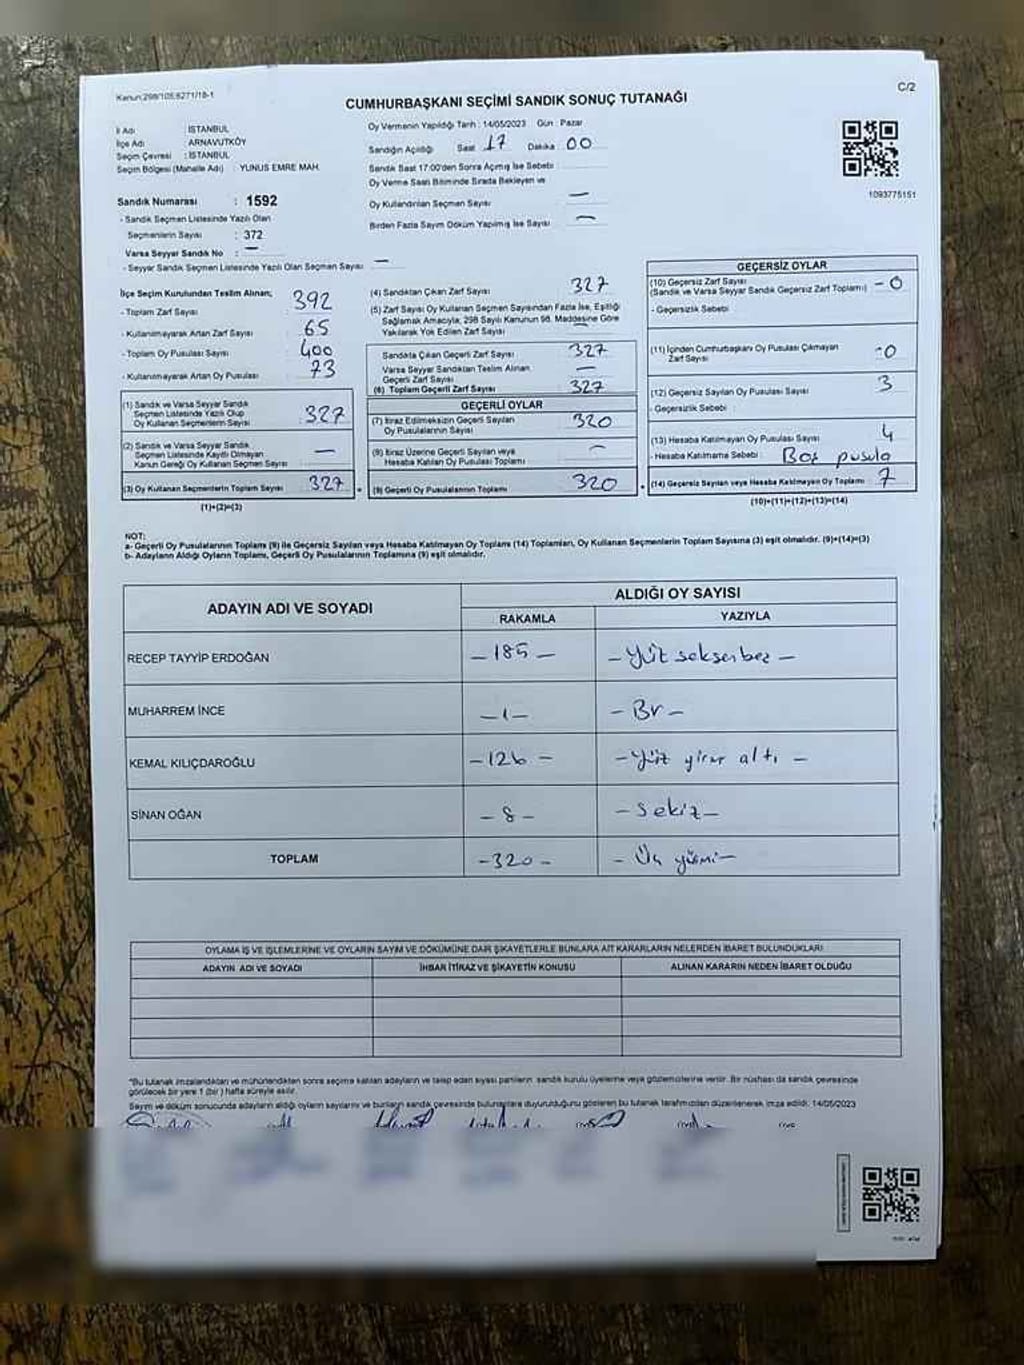 Kanun:298/105,6271/18-1
C/2
CUMHURBAŞKANI SEÇİMİ SANDIK SONUÇ TUTANAĞI
İl Adı : İSTANBUL
İlçe Adı : ARNAVUTKÖY
Seçim Çevresi : İSTANBUL
Seçim Bölgesi (Mahalle Adı) : YUNUS EMRE MAH.
Sandık Numarası : 1592
- Sandık Seçmen Listesinde Yazılı Olan
Seçmenlerin Sayısı : 372
Varsa Seyyar Sandık No : —
- Seyyar Sandık Seçmen Listesinde Yazılı Olan Seçmen Sayısı —
Oy Vermenin Yapıldığı Tarih : 14/05/2023 Gün : Pazar
Sandığın Açıldığı Saat 17 Dakika 00
Sandık Saat 17:00'den Sonra Açılmış İse Sebebi
Oy Verme Saati Bitiminde Sırada Bekleyen ve
Oy Kullandırılan Seçmen Sayısı —
Birden Fazla Sayım Döküm Yapılmış İse Sayısı —
1093775151
İlçe Seçim Kurulundan Teslim Alınan;
- Toplam Zarf Sayısı : 392
- Kullanılmayarak Artan Zarf Sayısı : 65
- Toplam Oy Pusulası Sayısı : 400
- Kullanılmayarak Artan Oy Pusulası : 73
(1) Sandık ve Varsa Seyyar Sandık
Seçmen Listesinde Yazılı Olup
Oy Kullanan Seçmenlerin Sayısı : 327
(2) Sandık ve Varsa Seyyar Sandık
Seçmen Listesinde Kayıtlı Olmayan
Kanun Gereği Oy Kullanan Seçmen Sayısı : —
(3) Oy Kullanan Seçmenlerin Toplam Sayısı : 327
(1)+(2)=(3)
(4) Sandıktan Çıkan Zarf Sayısı : 327
(5) Zarf Sayısı Oy Kullanan Seçmen Sayısından Fazla İse, Eşitliği
Sağlamak Amacıyla, 298 Sayılı Kanunun 98. Maddesine Göre
Yakılarak Yok Edilen Zarf Sayısı : —
Sandıkta Çıkan Geçerli Zarf Sayısı : 327
Varsa Seyyar Sandıktan Teslim Alınan
Geçerli Zarf Sayısı : —
(6) Toplam Geçerli Zarf Sayısı : 327
GEÇERLİ OYLAR
(7) İtiraz Edilmeksizin Geçerli Sayılan
Oy Pusulalarının Sayısı : 320
(8) İtiraz Üzerine Geçerli Sayılan veya
Hesaba Katılan Oy Pusulası Toplamı : —
(9) Geçerli Oy Pusulalarının Toplamı : 320
GEÇERSİZ OYLAR
(10) Geçersiz Zarf Sayısı
(Sandık ve Varsa Seyyar Sandık Geçersiz Zarf Toplamı) - 0
- Geçersizlik Sebebi :
(11) İçinden Cumhurbaşkanı Oy Pusulası Çıkmayan
Zarf Sayısı -0
(12) Geçersiz Sayılan Oy Pusulası Sayısı : 3
- Geçersizlik Sebebi :
(13) Hesaba Katılmayan Oy Pusulası Sayısı : 4
- Hesaba Katılmama Sebebi : Boş pusula
(14) Geçersiz Sayılan veya Hesaba Katılmayan Oy Toplamı : 7
(10)+(11)+(12)+(13)=(14)
NOT:
a- Geçerli Oy Pusulalarının Toplamı (9) ile Geçersiz Sayılan veya Hesaba Katılmayan Oy Toplamı (14) Toplamları, Oy Kullanan Seçmenlerin Toplam Sayısına (3) eşit olmalıdır. (9)+(14)=(3)
b- Adayların Aldığı Oyların Toplamı, Geçerli Oy Pusulalarının Toplamına (9) eşit olmalıdır.
ADAYIN ADI VE SOYADI
ALDIĞI OY SAYISI
RAKAMLA YAZIYLA
RECEP TAYYİP ERDOĞAN — 185 — — Yüz seksenbeş —
MUHARREM İNCE —1— — Bir —
KEMAL KILIÇDAROĞLU — 126 — — Yüz yirmi altı —
SİNAN OĞAN — 8 — — Sekiz —
TOPLAM —320— — Üç yüz yirmi —
OYLAMA İŞ VE İŞLEMLERİNE VE OYLARIN SAYIM VE DÖKÜMÜNE DAİR ŞİKAYETLERLE BUNLARA AİT KARARLARIN NELERDEN İBARET BULUNDUKLARI
ADAYIN ADI VE SOYADI İHBAR İTİRAZ VE ŞİKAYETİN KONUSU ALINAN KARARIN NEDEN İBARET OLDUĞU
*Bu tutanak imzalandıktan ve mühürlendikten sonra seçime katılan adayların ve talep eden siyasi partilerin sandık kurulu üyelerine veya gözlemcilerine verilir. Bir nüshası da sandık çevresinde
görülecek bir yere 1 (bir) hafta süreyle asılır.
Sayım ve döküm sonucunda adayların aldığı oyların sayılarını ve bunların sandık çevresinde bulunanlara duyurulduğunu gösteren bu tutanak tarafımızdan düzenlenerek imza edildi. 14/05/2023